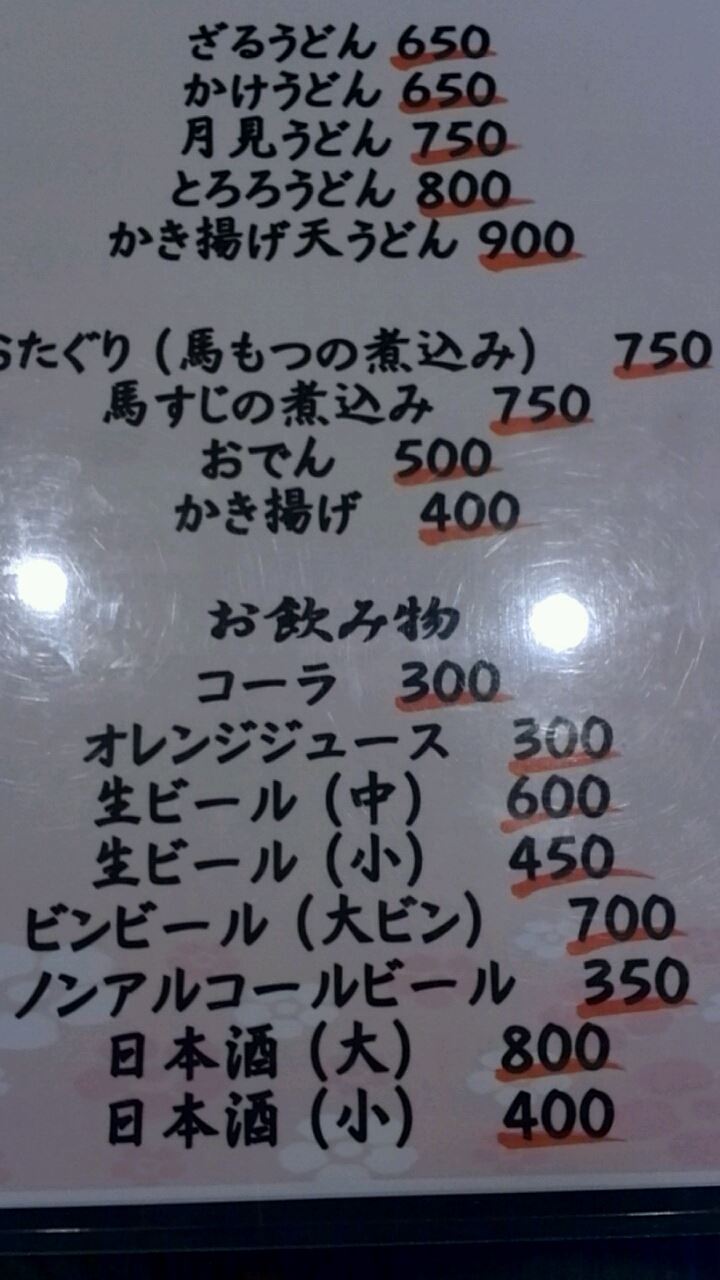 ざるうどん 650
かけうどん 650
月見うどん 750
とろろうどん 800
かき揚げ天うどん 900
おたぐり（馬もつの煮込み） 750
馬すじの煮込み 750
おでん 500
かき揚げ 400
お飲み物
コーラ 300
オレンジジュース 300
生ビール（中） 600
生ビール（小） 450
ビンビール（大ビン） 700
ノンアルコールビール 350
日本酒（大） 800
日本酒（小） 400